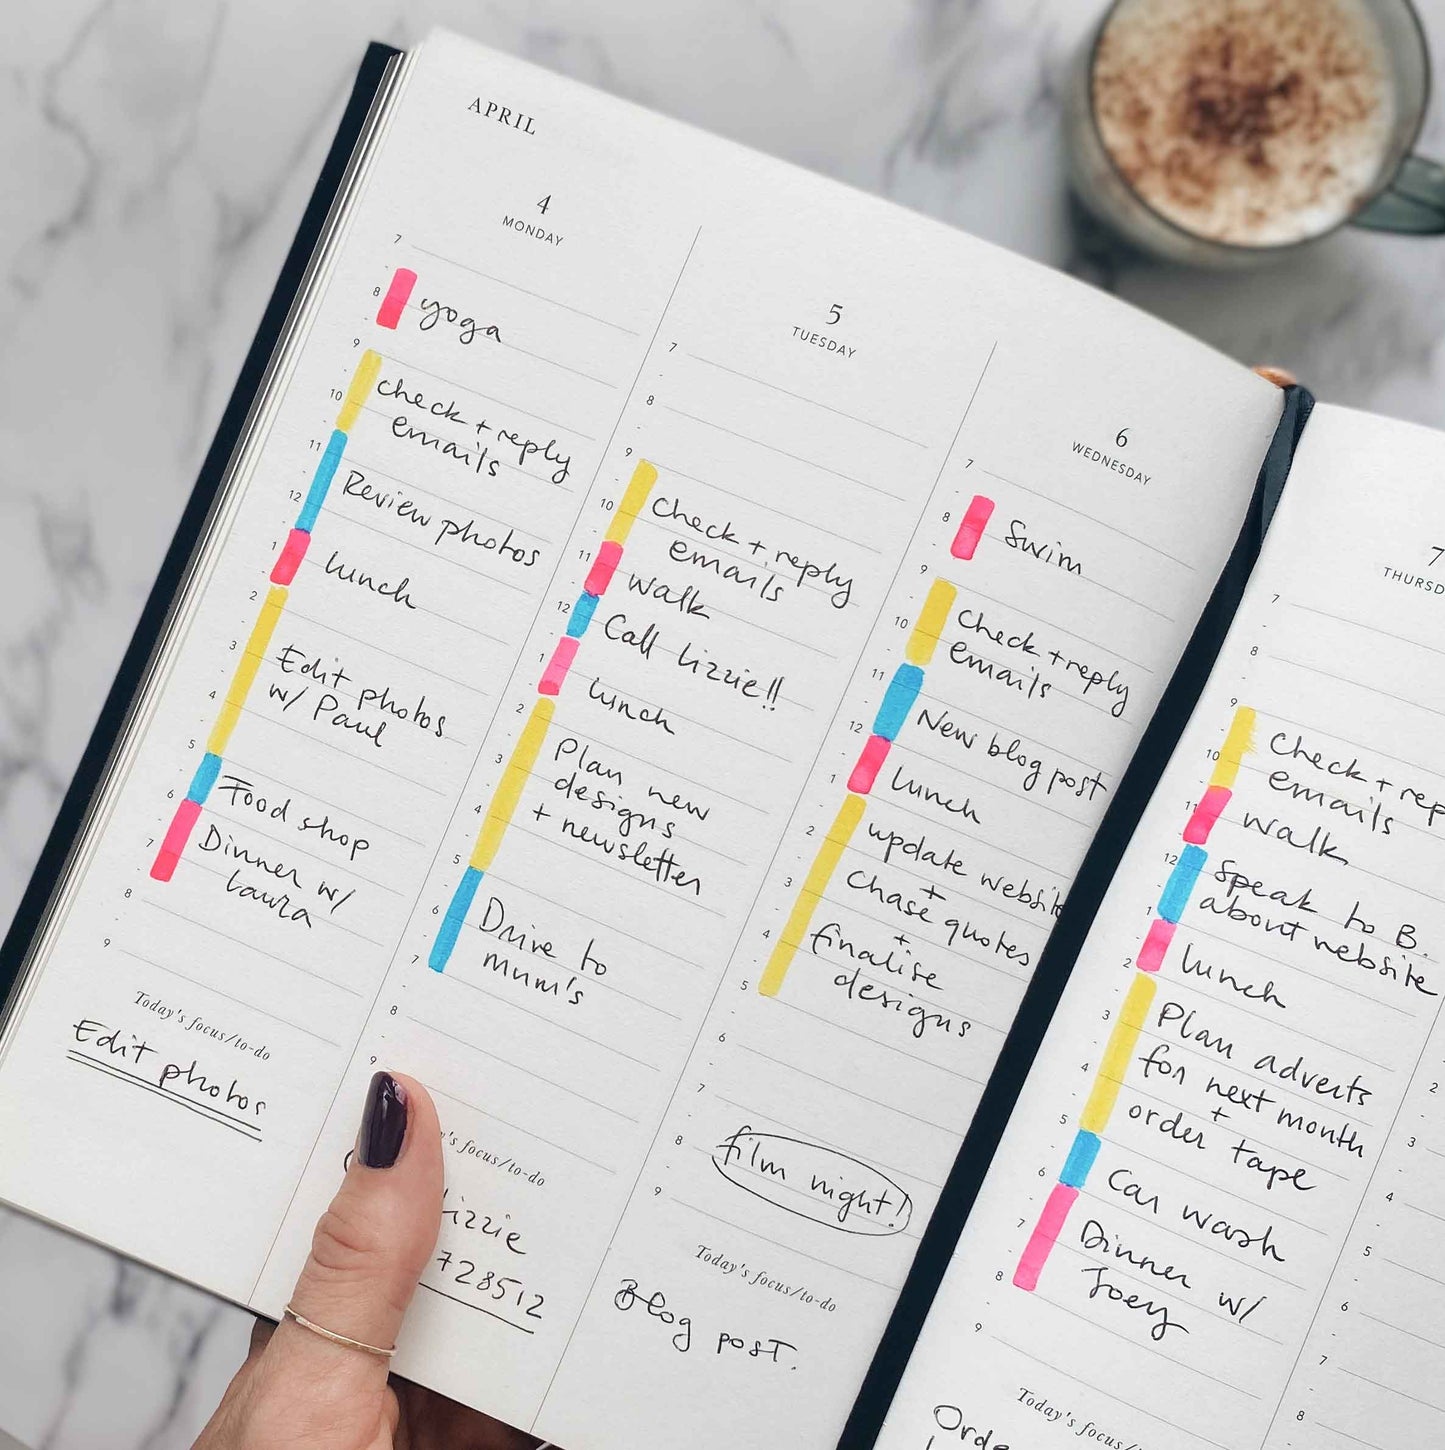 APRIL
4
MONDAY
7
8
yoga
9
10
check + reply
emails
11
12
Review photos
1
lunch
2
3
4
Edit photos
w/ Paul
5
Food shop
6
7
Dinner w/
Laura
8
9
Today's focus/to-do
Edit photos
5
TUESDAY
7
8
9
10
check + reply
emails
11
walk
12
Call Lizzie!!
1
lunch
2
3
4
Plan new
designs
+ newsletter
5
6
7
Drive to
mum's
8
9
focus/to-do
728512
6
WEDNESDAY
7
8
Swim
9
10
check + reply
emails
11
New blog post
12
1
lunch
2
3
4
update website
+
chase quotes
+
finalise
designs
5
6
7
8
film night!
9
Today's focus/to-do
Blog post.
7
THURSD
7
8
9
10
check + rep
emails
11
walk
12
1
speak to B.
about website
2
lunch
3
4
Plan adverts
for next month
+
order tape
5
6
Car wash
7
8
Dinner w/
Joey
9
Today's focus/to-do
2
3
4
5
6
7
8